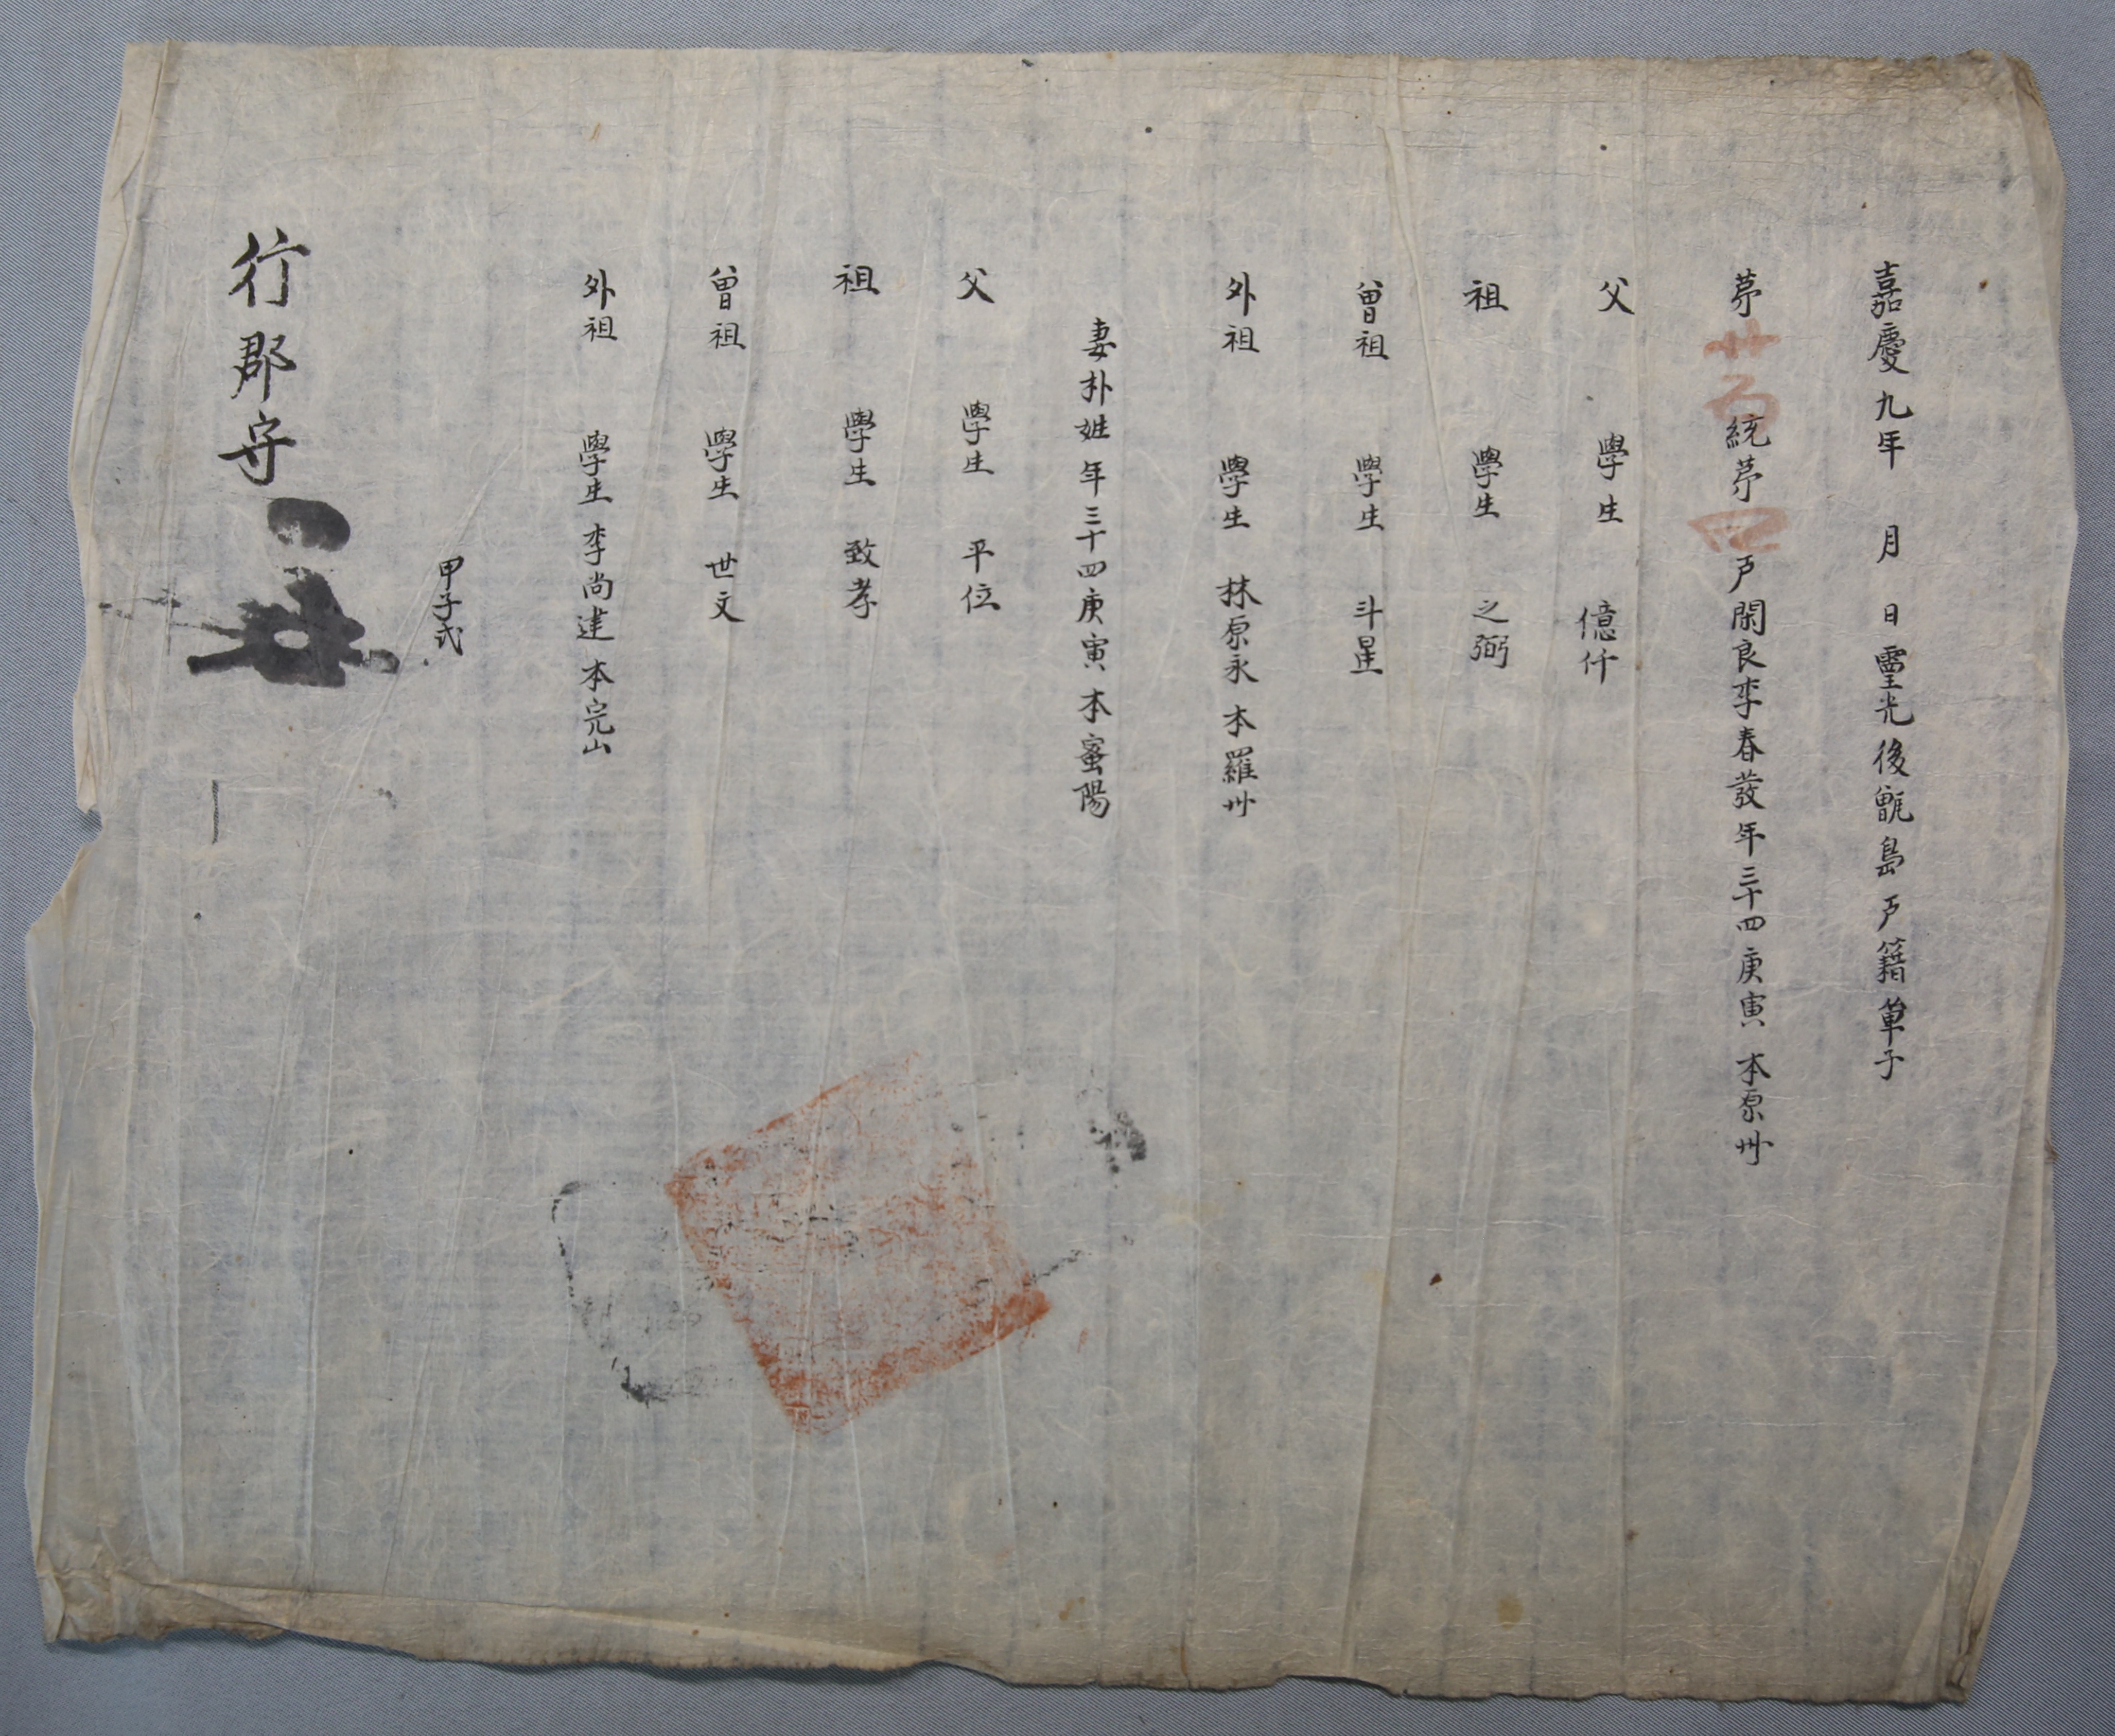 嘉慶九年 月 日 靈光後甑島戶籍單子
茅卄五統茅四戶閑良李春發年三十四庚寅 本原州
父 學生 億仟
祖 學生 之弼
曾祖 學生 斗星
外祖 學生 林原永 本羅州
妻朴姓年三十四庚寅 本蜜陽
父 學生 平位
祖 學生 致孝
曾祖 學生 世文
外祖 學生 李尚建 本完山
甲子式
行郡守